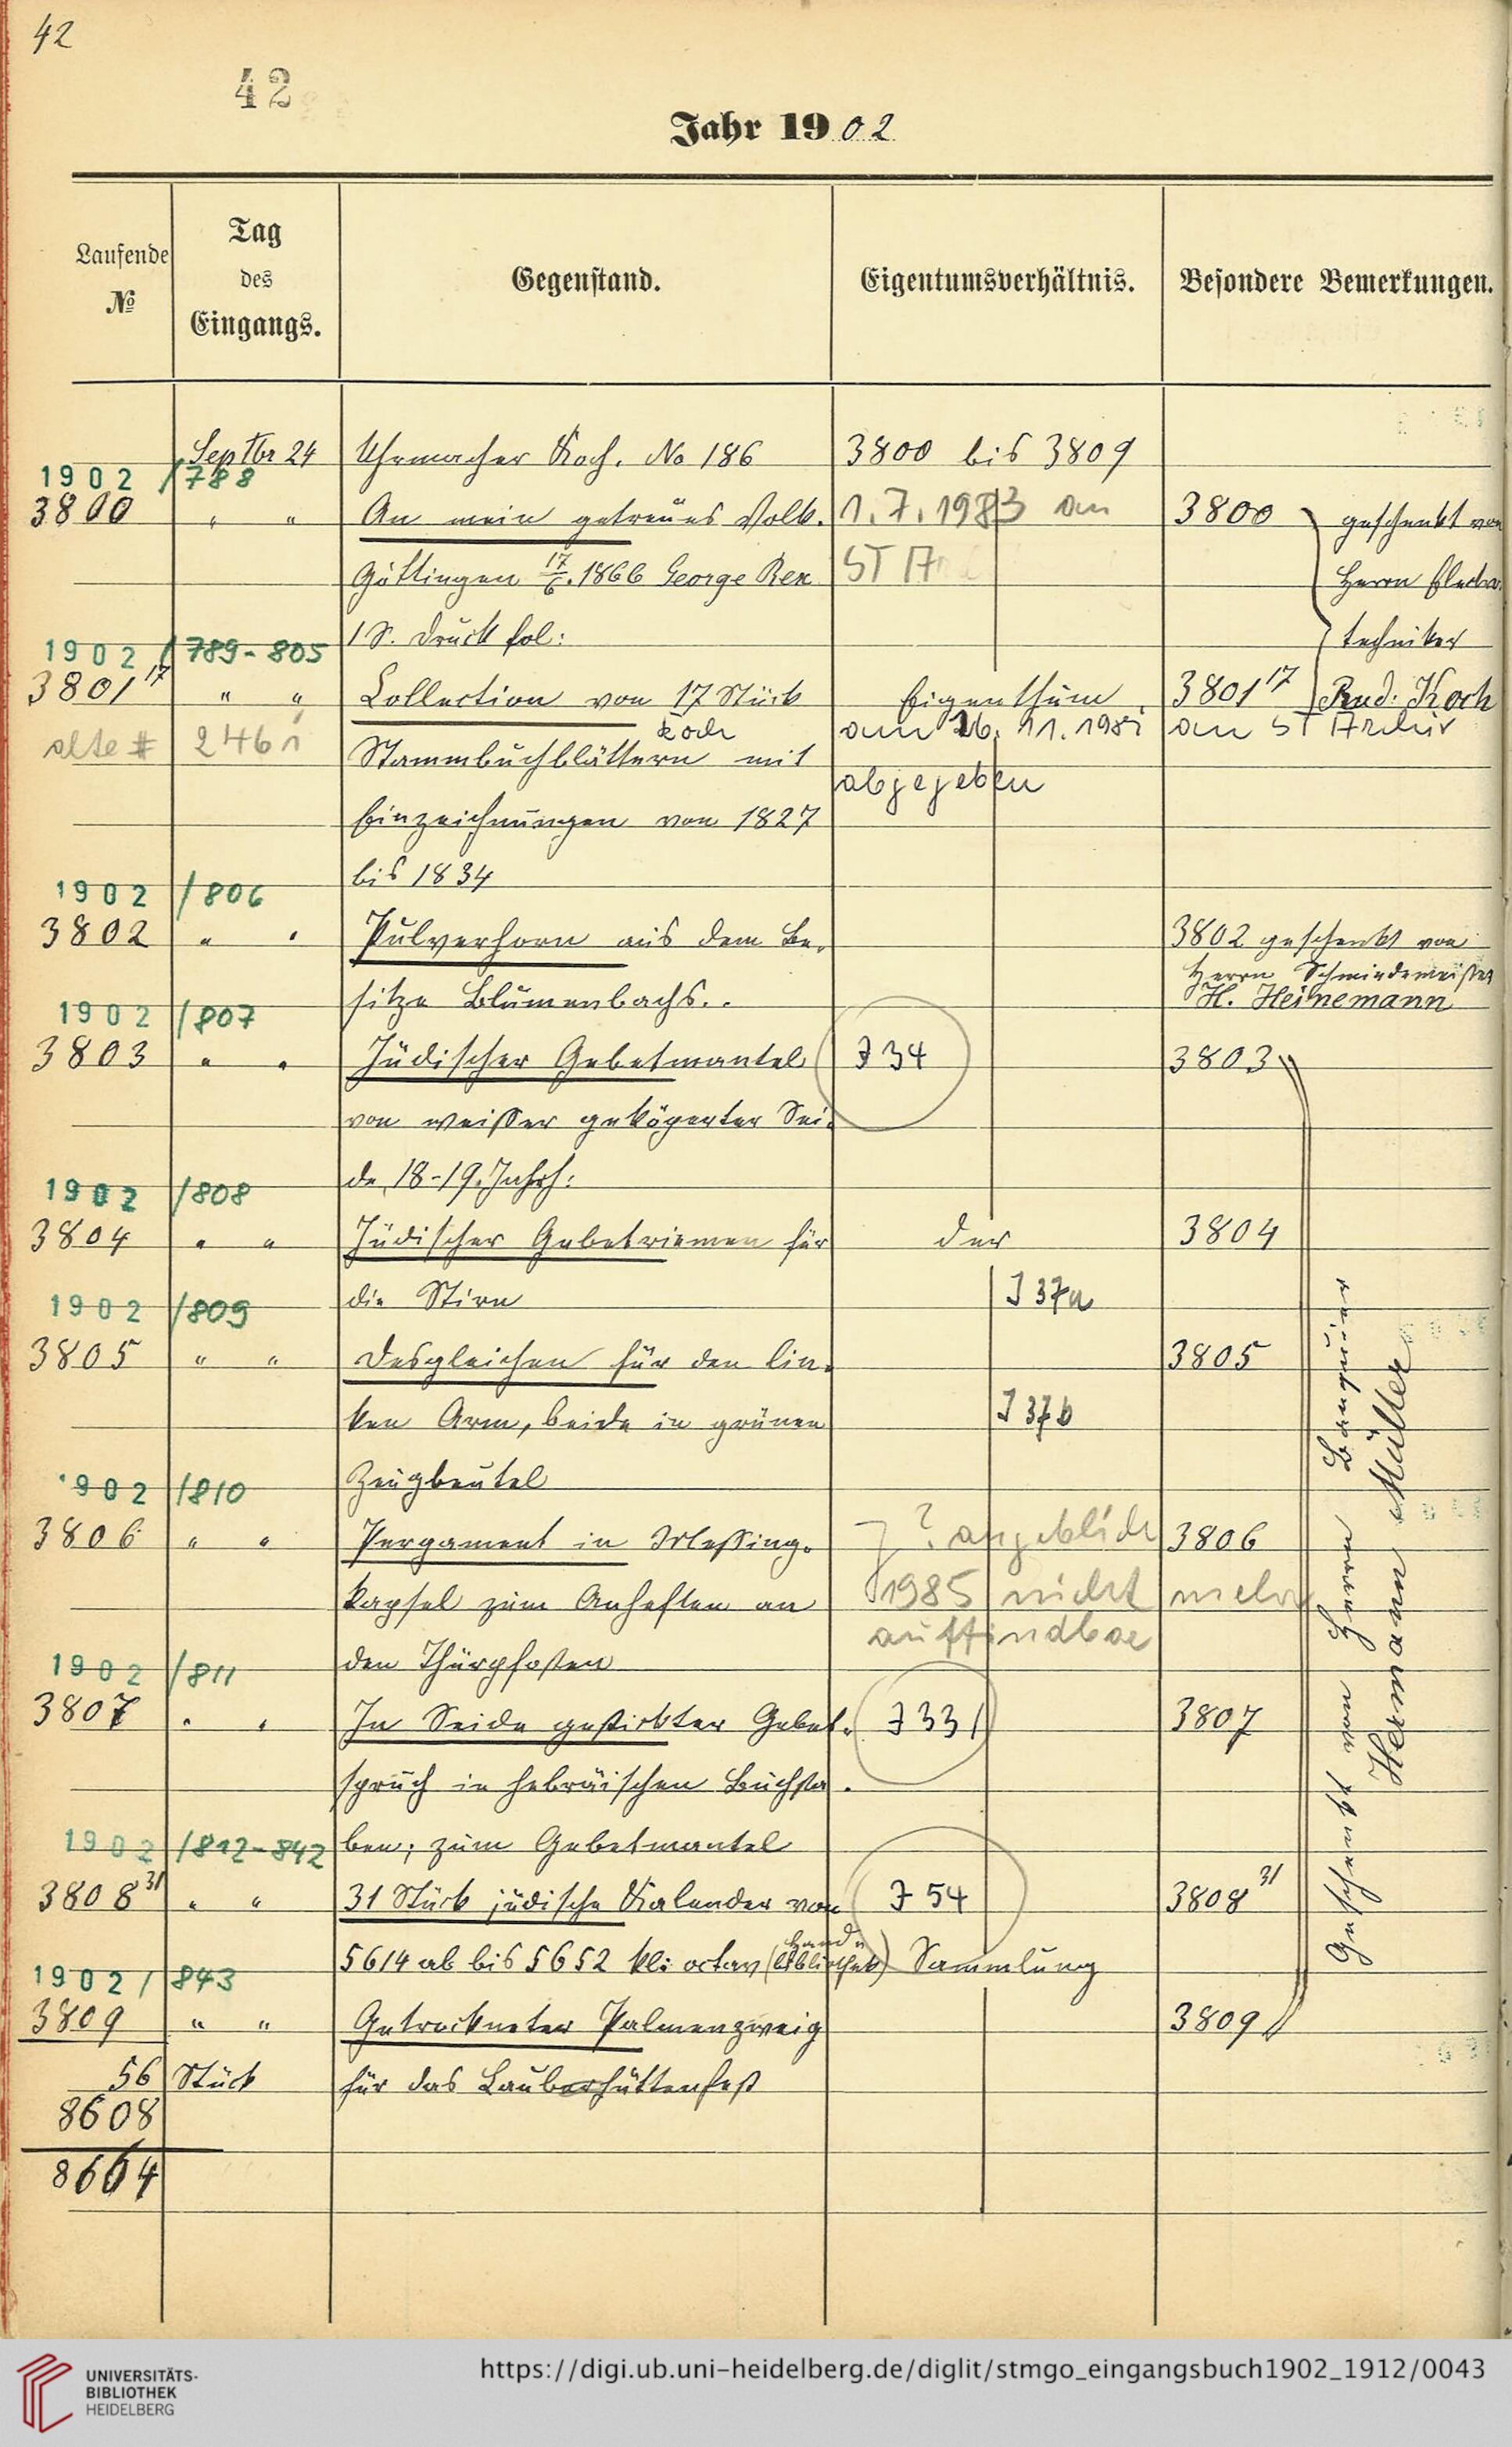 42
42
Jahr 1902
Laufende
№
Tag
des
Eingangs.
Gegenstand.
Eigentumsverhältnis.
Besondere Bemerkungen.
Septbr 24 Uhrmacher Koch. No 186 3800 bis 3809
1902 /788
3800 " " An mein getreues Volk. 1.7.1983 an 3800 geschenkt von
Göttingen 17/6. 1866 George Rex STA Herrn Electro-
1 S. Druck fol: techniker
1902 /789-805
3801 17 " " Collection von 17 Stück Eigenthum 3801 17 Rud: Koch
alte # 2461 Koch am 26.11.1981 an ST Archiv
Stammbuchblättern mit abgegeben
Einzeichnungen von 1827
bis 1834
1902 /806
3802 " " Pulverhorn aus dem Be- 3802 geschenkt von
Herrn Schmiedemeister
sitze Blumenbachs. H. Heinemann
1902 /807
3803 " " Jüdischer Gebetmantel J 34 3803
von weisser geköperter Sei-
de, 18-19. Jahrh:
1902 /808
3804 " " Jüdischer Gebetriemen für der 3804
die Stirn J 37a
1902 /809
3805 " " Desgleichen für den lin- 3805
ken Arm, beide in grünen J 37b
Zeugbeutel
1902 /810
3806 " " Pergament in Messing- ? angeblich 3806
kapsel zum Anheften an 1985 nicht mehr
auffindbar
den Thürpfosten
1902 /811
3807 " " In Seide gestickter Gebet- J 331 3807
spruch in hebräischen Buchsta-
ben; zum Gebetmantel
1902 /812-842
3808 31 " " 31 Stück jüdische Kalender von J 54 3808 31
5614 ab bis 5652 kl: octav (Handbibliothek) Sammlung
1902 / 843
3809 " " Getrockneter Palmenzweig 3809
56 Stück für das Lauberhüttenfest
8608
8664
Geschenkt von Herrn Banquier
Hermann Müller
UNIVERSITÄTS-
BIBLIOTHEK
HEIDELBERG
https://digi.ub.uni-heidelberg.de/diglit/stmgo_eingangsbuch1902_1912/0043